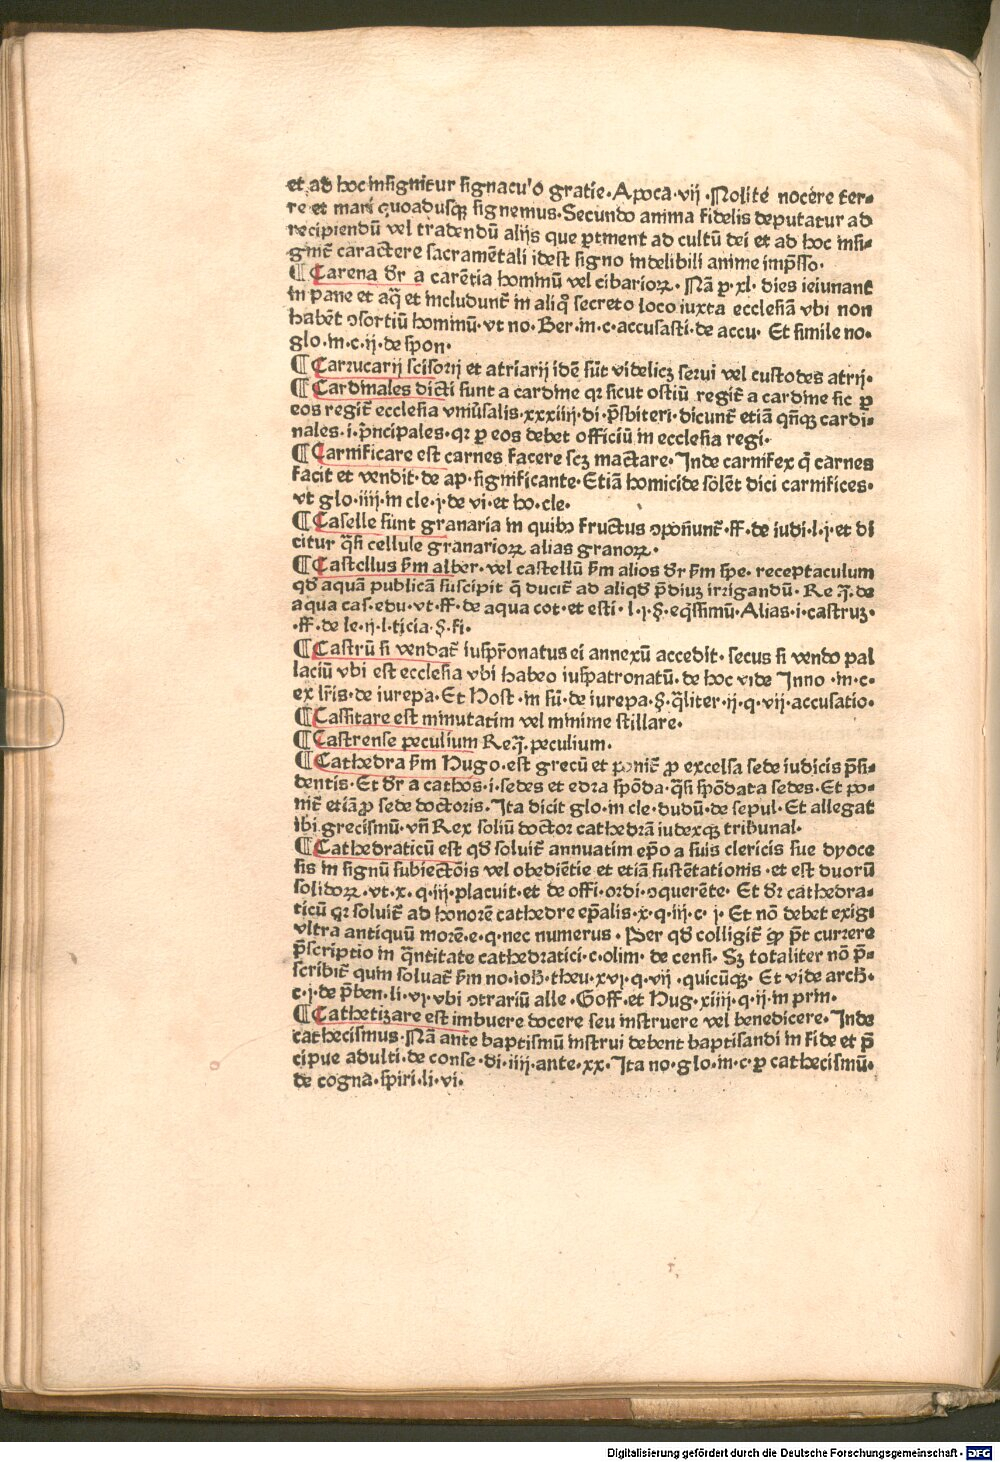 et ad hoc insignitur signacu'o gratie. Apoca. vij. Nolite nocere ter⸗
re et mari quoadusq; signemus. Secundo anima fidelis deputatur ad
recipiendū vel tradendū alijs que ꝑtinent ad cultū dei et ad hoc insi⸗
gnit᷑ caractere sacramētali idest signo indelibili anime imp̄sso.
¶ Carena dr̄ a carētia hominū vel cibarioꝝ. Nā ꝑ. xl. dies ieiunant
in pane et aq̄ et includunt᷑ in aliq̊ secreto loco iuxta ecclesiā vbi non
habēt ↄsortiū hominū. vt no. Ber. in. c. accusasti. de accu. Et simile no.
glo. in. c. ij. de spon.
¶ Carrucarij scisorij et atriarij idē sūt videlicꝫ serui vel custodes atrij.
¶ Cardinales dicti sunt a cardine qꝛ sicut ostiū regit᷑ a cardine sic ꝑ
eos regit᷑ ecclesia vniūsalis. xxxiiij. di. p̄sbiteri. dicunt᷑ etiā qn̄q; cardi⸗
nales. i. p̄ncipales. qꝛ ꝑ eos debet officiū in ecclesia regi.
¶ Carnificare est carnes facere scꝫ mactare. Inde carnifex q̄ carnes
facit et vendit. de ap. significante. Etiā homicide solēt dici carnifices.
vt glo. iiij. in cle. j. de vi. et ho. cle.
¶ Caselle sunt granaria in quibꝰ fructus ↄponūnt᷑. ff. de iudi. l. j. et di
citur q̄si cellule granarioꝝ alias granoꝝ.
¶ Castellus s̄m alber. vel castellū s̄m alios dr̄ s̄m spe. receptaculum
qd̄ aquā publicā suscipit q̄ ducit᷑ ad aliqd̄ p̄diuꝫ irrigandū. Re q̄. de
aqua cas. edu. vt. ff. de aqua cot. et esti. l. j. §. eq̄ssimū. Alias. i. castruꝫ.
.ff. de le. ij. l. ticia. §. fi.
¶ Castrū si vendat᷑ iuspr̄onatus ei annexū accedit. secus si vendo pal
laciū vbi est ecclesia vbi habeo iuspatronatū. de hoc vide Inno. in. c.
ex lr̄is. de iurepa. Et Host. in sū. de iurepa. §. q̄liter. ij. q. vij. accusatio.
¶ Cassitare est minutatim vel minime stillare.
¶ Castrense peculium Re q̄. peculium.
¶ Cathedra s̄m Hugo. est grecū et ponit᷑ ꝓ excelsa sede iudicis p̄si⸗
dentis. Et dr̄ a cathos. i. sedes et edra spōda. q̄si spōdata sedes. Et po⸗
nit᷑ etiā ꝓ sede doctoris. Ita dicit glo. in cle. dudū. de sepul. Et allegat
ibi grecismū. vn̄ Rex soliū doctor cathedrā iudexq; tribunal.
¶ Cathedraticū est qd̄ soluit᷑ annuatim ep̄o a suis clericis sue dyoce
sis in signū subiectōis vel obediētie et etiā sustētationis. et est duorū
solidoꝝ. vt. x. q. iij. placuit. et de offi. ordi. ↄquerēte. Et dr̄ cathedra⸗
ticū qꝛ soluit᷑ ad honorē cathedre ep̄alis. x. q. iij. c. j. Et nō debet exigi
vltra antiquū morē. e. q. nec numerus. Per qd̄ colligit᷑ ꝙ p̄t currere
p̄scriptio in q̄ntitate cathedratici. c. olim. de censi. Sꝫ totaliter nō p̄⸗
scribit᷑ quin soluat᷑ s̄m no. ioh̄. theu. xvj. q. vij. quicūq;. Et vide arch̄.
c. j. de p̄ben. li. vj. vbi ↄtrariū alle. Goff. et Hug. xiiij. q. ij. in prin.
¶ Cathetizare est imbuere docere seu instruere vel benedicere. Inde
cathecismus. Nā ante baptismū instrui debent baptisandi in fide et p̄
cipue adulti. de conse. di. iiij. ante. xx. Ita no. glo. in. c. ꝑ cathecismū.
de cogna. spiri. li. vi.
Digitalisierung gefördert durch die Deutsche Forschungsgemeinschaft - DFG